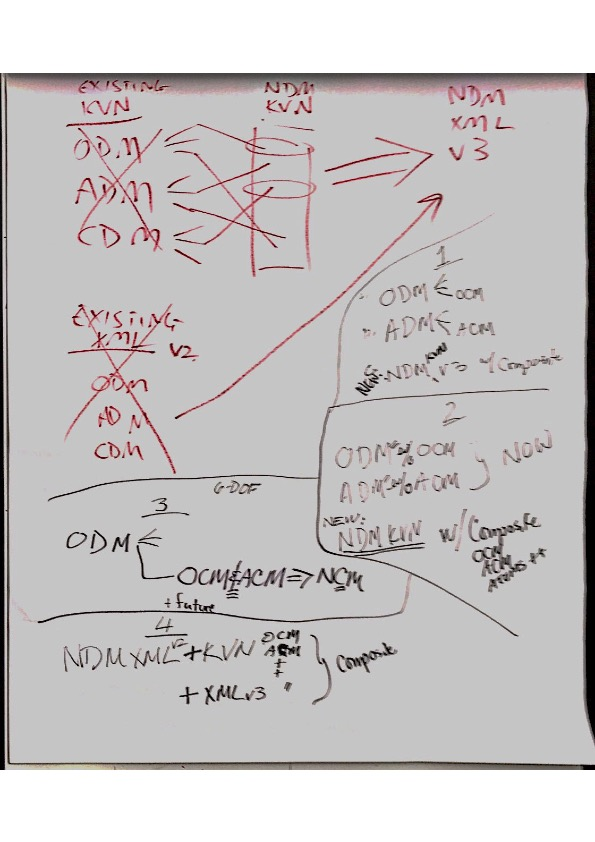 EXISTING
KVN
ODM
ADM
CDM
NDM
KVN
NDM
XML
v3
EXISTING
XML v2
ODM
ADM
CDM
1
ODM < OCM
ADM < ACM
NDM KVN v3 w/ Composite
2
ODM w/o OCM
ADM w/o ACM
NOW
NEW:
NDM KVN w/ Composite
OCM
ACM
6-DOF
3
ODM <
OCM & ACM => NCM
+ future
4
NDM XML v2 + KVN OCM
ACM
+
+
+ XML v3 "
Composite